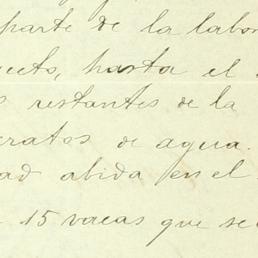 parte de la labor
yecto, hasta el
restantes de la
eratos de agua.
ad abida en el
15 vacas que se